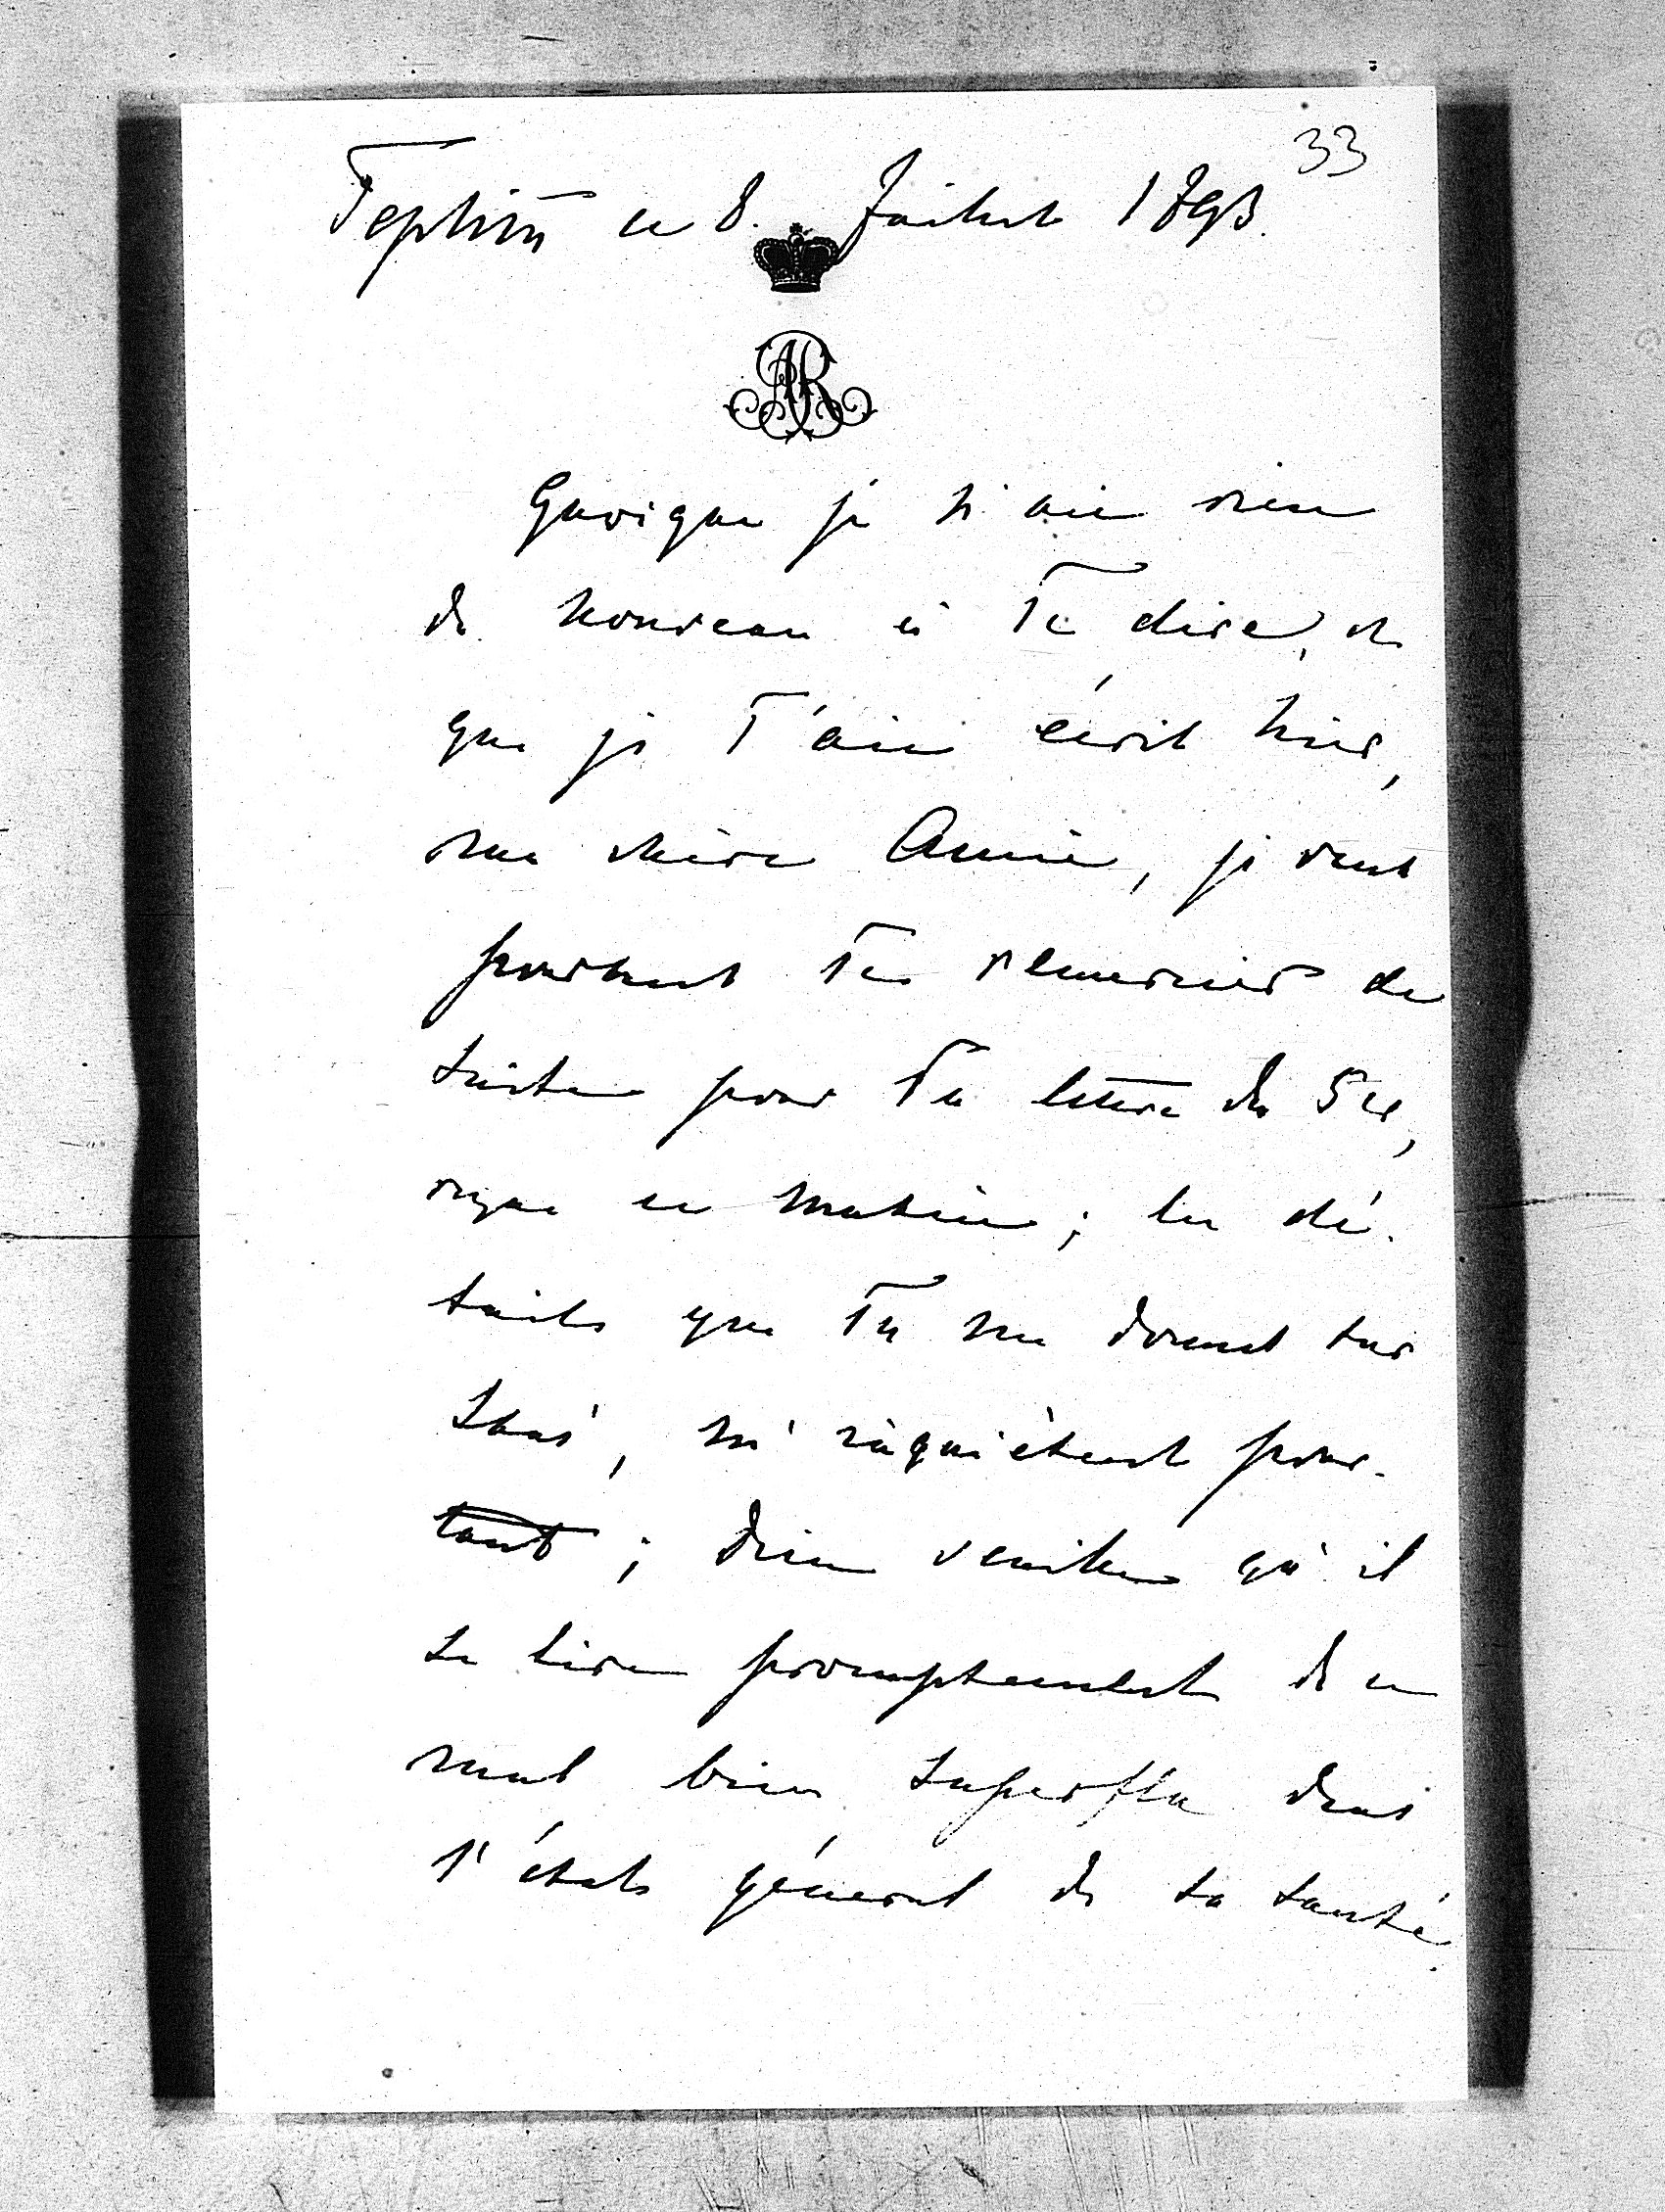 33
Teplitz ce 8. Juillet 1893.
AR
Quoique je n'aie rien
de nouveau à Te dire, et
que je T'aie écrit hier,
ma chère Amie, je veux
pourtant Te remercier de
suite pour Ta lettre du 5 cr,
reçue ce matin; les dé-
tails que Tu me donnes sur
, m'inquiètent pour-
tant; Dieu veuille qu'il
se tire promptement de ce
mal bien superflu dans
l'état général de sa santé.